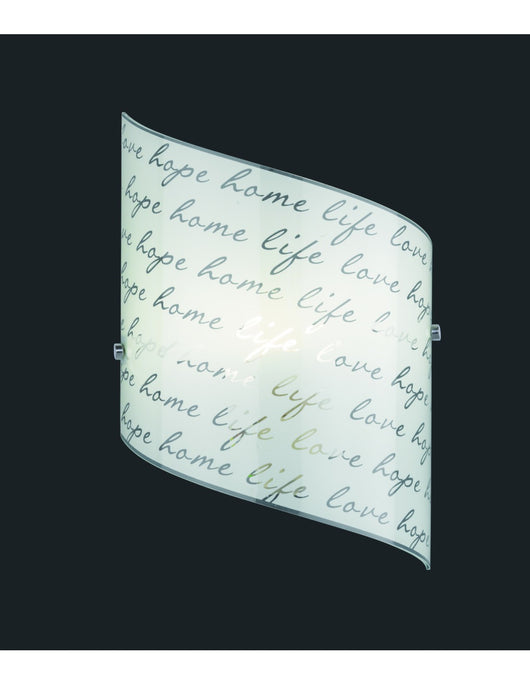 love hope home life love
hope home life love hope
love hope home life love
hope home life love hope
love hope home life love
hope home life love hope
hope home life love hope
hope home life love hope